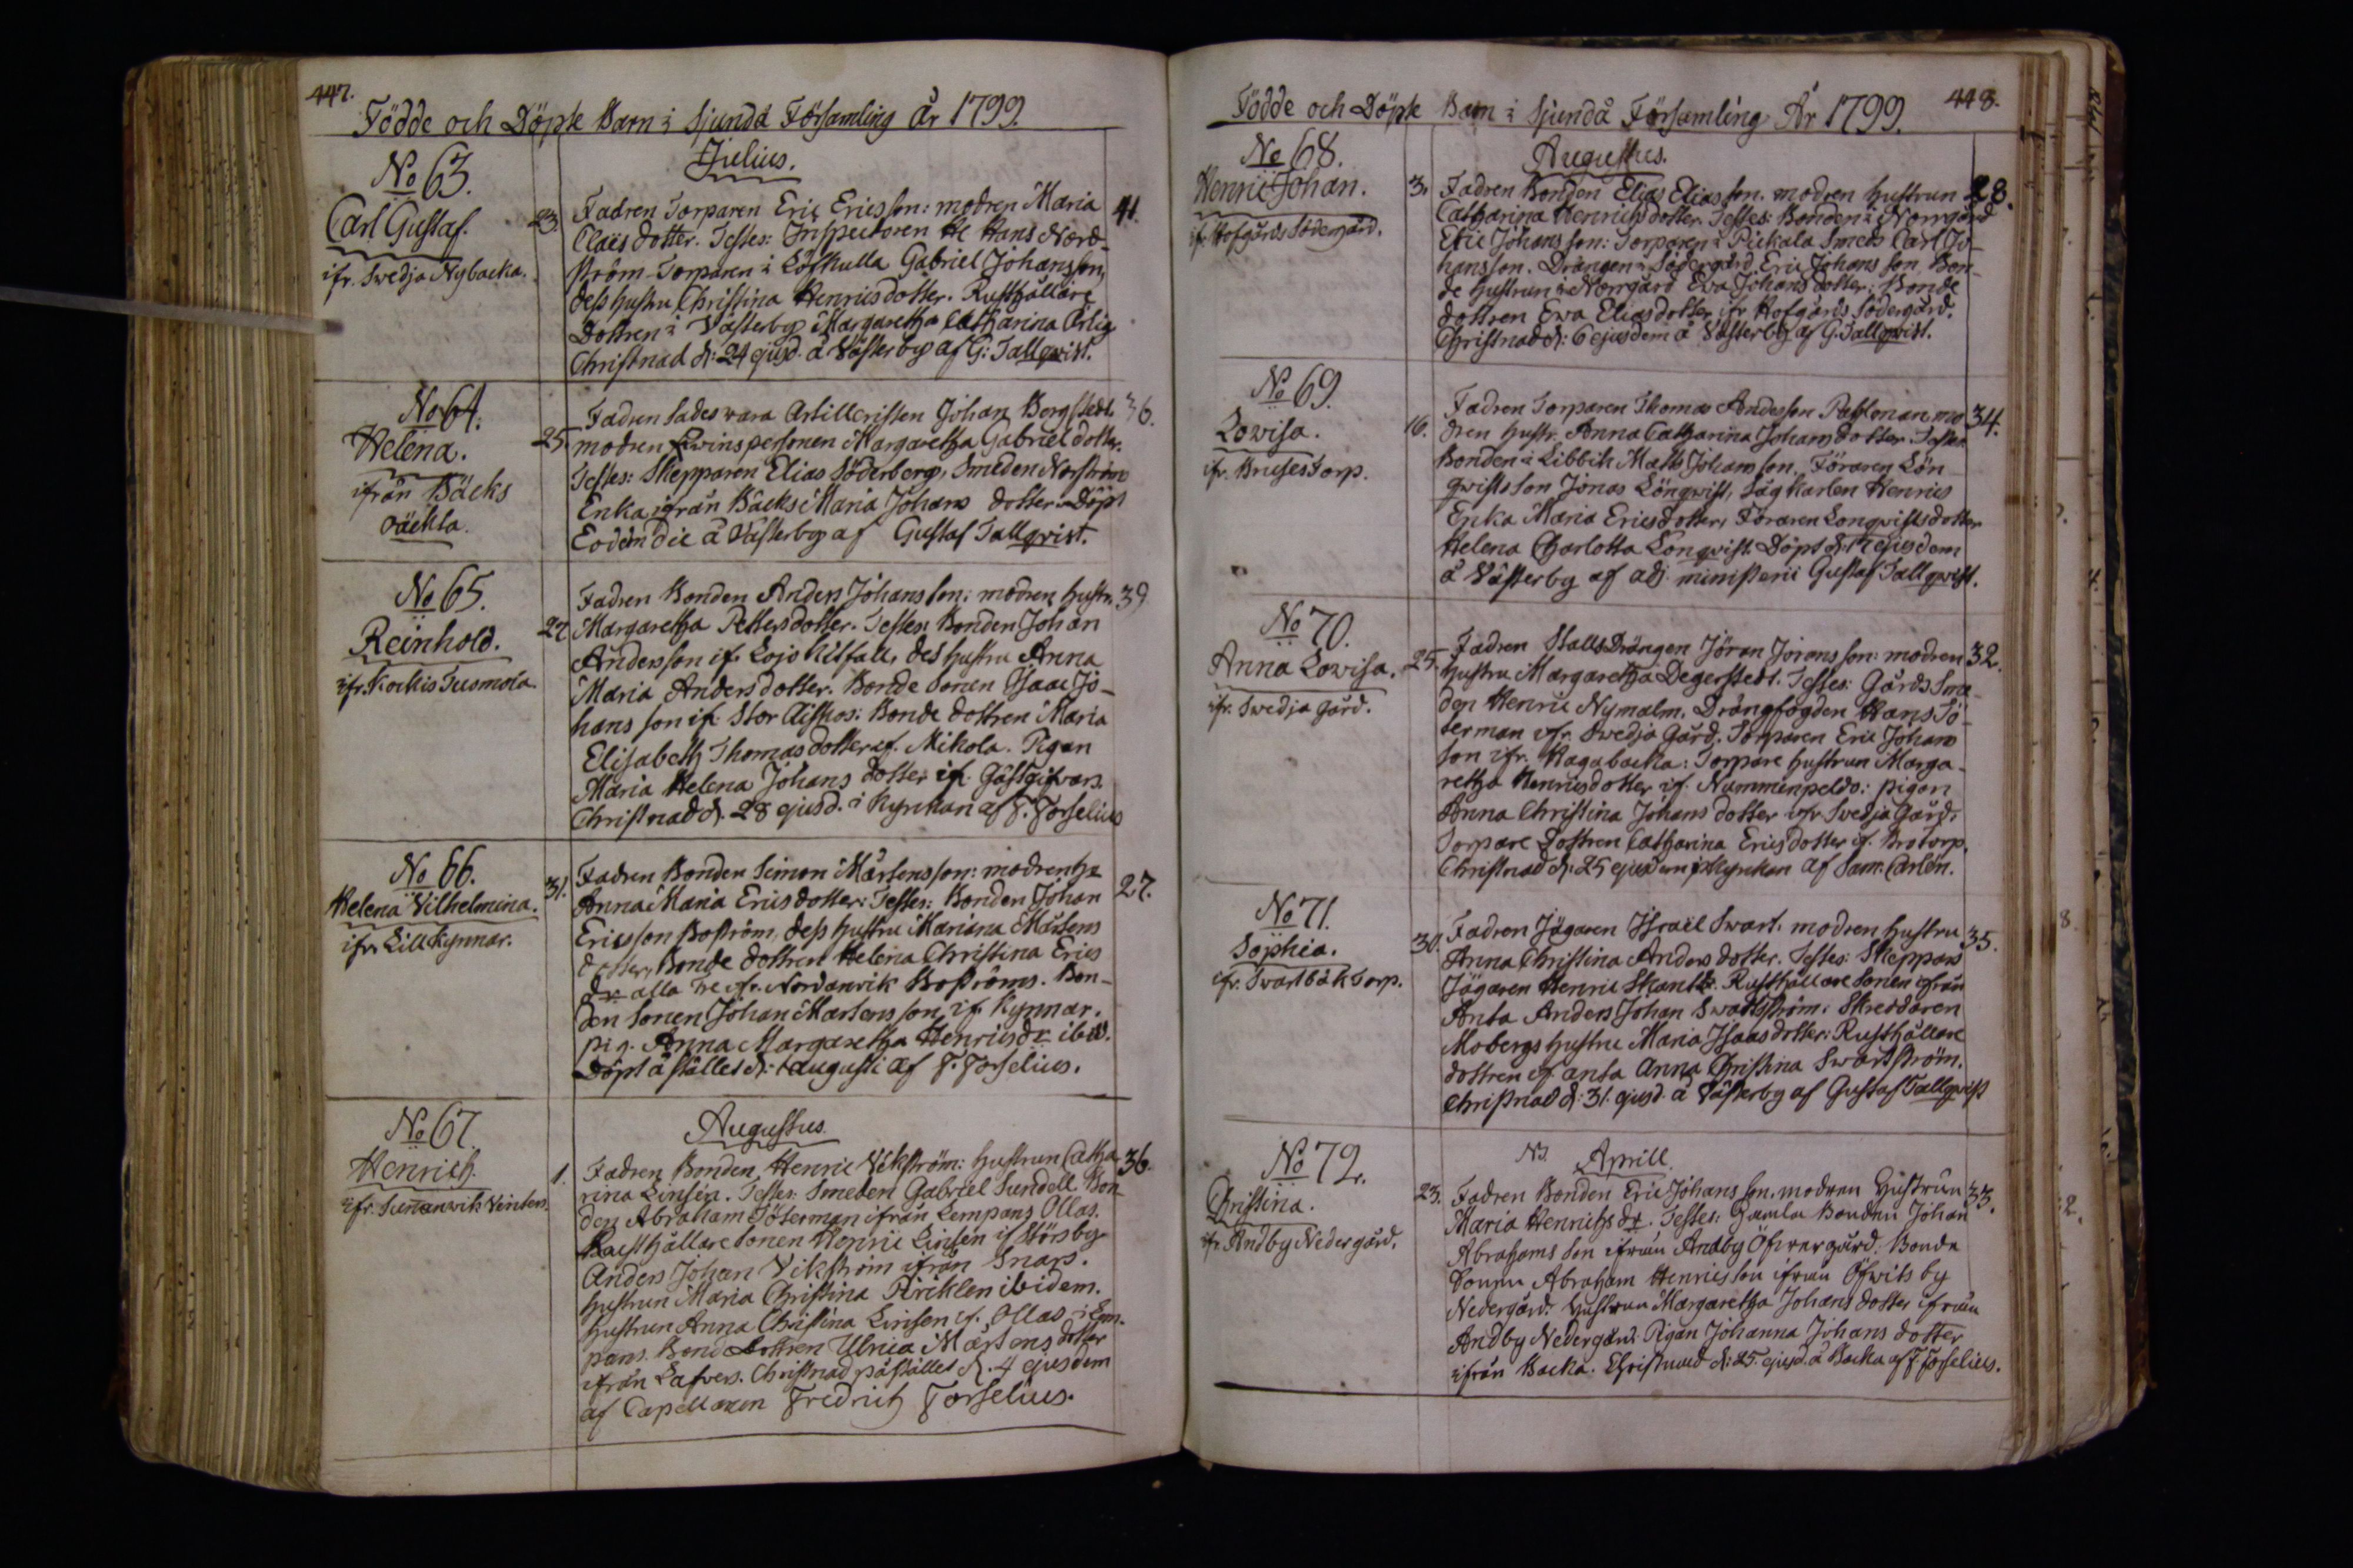 447.
Födde och Döpte Barn i Sjundå Församling År 1799.
Julius.
No 63.
Carl Gustaf.
ifr. Swedja Nybacka.
23.
Fadren Torparen Eric Ericsson: modren Maria
Claës dotter. Testes: Inspectoren H Hans Nord-
ström Torparen i Löfkulla Gabriel Johansson,
dess hustru Christina Henricsdotter. Rusthållare
Dottren i Västerby Margaretha Catharina
Christnad d: 24 ejusd. å Västerby af G: Tallqvist.
41.
No 64.
Helena.
ifrån Bäcks
oäckta.
25.
Fadren sades wara Artilleristen Johan Bergstedt.
modren Qwinspersonen Margaretha Gabriel dotter.
Testes: Skepparen Elias Söderberg, Smeden Norström
Enka ifrån Bäcks Maria Johans dotter. Döpt
Eodem die å Västerby af Gustaf Tallqvist.
36.
No 65.
Reinhold.
ifr. Kockis Tusmola.
27.
Fadren Bonden Anders Johansson: modren hustr.
Margaretha Pettersdotter. Testes: Bonden Johan
Andersson if. Lojo, des hustru Anna
Maria Andersdotter. Bonde Sonen Isaac Jo-
hansson if. Stor: Bonde dottren Maria
Elisabeth Thomasdotter if. Mikola. Pigan
Maria Helena Johans dotter if. Gästgifvars.
Christnad d. 28 ejusd. i Kyrckan af F. Forselius
39
No 66.
Helena Vilhelmina.
ifr. Lill Kynnar.
31.
Fadren Bonden Simon Mårtensson: modren h
Anna Maria Ericsdotter: Testes: Bonden Johan
Ericsson Boström, dess hustru Mariana Mårtens
dotter, Bonde dottren Helena Christina Erics
dr alla tre ifr. Nordanvik Boströms. Bon-
den Sonen Johan Mårtensson if. Kynnar.
pig. Anna Margaretha Henricsdr ibid.
Döpt å stället d. 1 augusti af F. Forselius.
27.
Augustus.
No 67.
Henrich.
ifr. Sunnanwik
1.
Fadren Bonden Henric Vikström: hustrun Catha-
rina Linsén. Testes: Smeden Gabriel Sundell Bon-
den Abraham Söterman ifrån Lempans Ollas.
Rusthållare Sonen Henric Linsén if. Störsby
Anders Johan Vikström ifrån Snars.
hustrun Maria Christina ibidem.
hustrun Anna Christina Linsen if. Ollas i Lem-
pans. Bonde dottren Ulrica Mårtens dotter
ifrån Lafvers. Christnad på stället d. 4 ejusdem
af Capellanen Fredrich Forselius.
36.
448.
Födde och Döpte Barn i Sjundå Församling År 1799.
Augustus.
No 68.
Henric Johan.
ifr. Hofgårds Södergård.
3.
Fadren Bonden Elias Eliasson. modren hustrun
Catharina Henrichsdotter. Testes: Bonden i Norrgård
Eric Johansson: Torparen i Pickala Smeds Carl Jo-
hansson. Drängen i Södergård Eric Johansson, Bon-
de hustrun i Norrgård Eva Johans dotter: Bonde
dottren Ewa Eliasdotter ifr Hofgårds Södergård.
Christnad d: 6 ejusdem å Västerby af G. Tallqvist.
28.
No 69.
Lowisa.
ifr. Bruses Torp.
16.
Fadren Torparen Thomas Andersson mo-
dren hustr. Anna Catharina Johansdotter Testes
Bonden i Libbik Matts Johansson. Föraren Lön-
qwists son Jonas Lönqwist, Sågkarlen Henrics
Enka Maria Ericsdotter, Föraren Lonqwists dotter
Helena Charlotta Lonqwist. Döpt d: 17 ejusdem
å Västerby af adj. ministerii Gustaf Tallqwist.
34.
No 70.
Anna Lowisa.
ifr. Swedja gård.
25.
Fadren Stalls Drängen Jöran Joransson: modren
hustru Margaretha Degerstedt. Testes: Gårds Sme-
den Henric Nymalm. Drängfogden Hans Sö-
terman ifr. Swedja Gård. Torparen Eric Johans
son ifr. Hagabacka: Torpare hustrun Marga-
retha Henricsdotter if. Nummenpeldo: pigan
Anna Christina Johans dotter ifr. Swedja Gård,
Torpare Dottren Catharina Ericsdotter if. Brotorp.
Christnad d: 25 ejusdem i Kyrckan af Sam: Carlén.
32.
No 71.
Sophia.
ifr. Swartbäk Torp.
30.
Fadren Jägaren Israël Swart. modren hustru
Anna Christina Anders dotter. Testes: Skeppars
Jägaren Henric. Rusthållare Sonen ifrån
Anta Anders Johan Swartström: Skreddaren
Mobergs hustru Maria Isaacsdotter: Rusthållare
dottren if. anta Anna Christina Swartström.
Christnad d: 31. ejusd. å Västerby af Gustaf Tallqwist
35.
N3. Aprill.
No 72.
Christina.
ifr. Andby Nedergård.
23.
Fadren Bonden Eric Johansson. modren Hustrun
Maria Henrichs dr. Testes: Gamla Bonden Johan
Abrahams son ifrån Andby Öfwergård. Bonde
Sonen Abraham Henricsson ifrån Öfwits by
Nedergård: hustrun Margaretha Johans dotter ifrån
Andby Nedergård: Pigan Johanna Johans dotter
ifrån Backa. Christnad d: 25. ejusd. å Backa af F Forselius.
33.